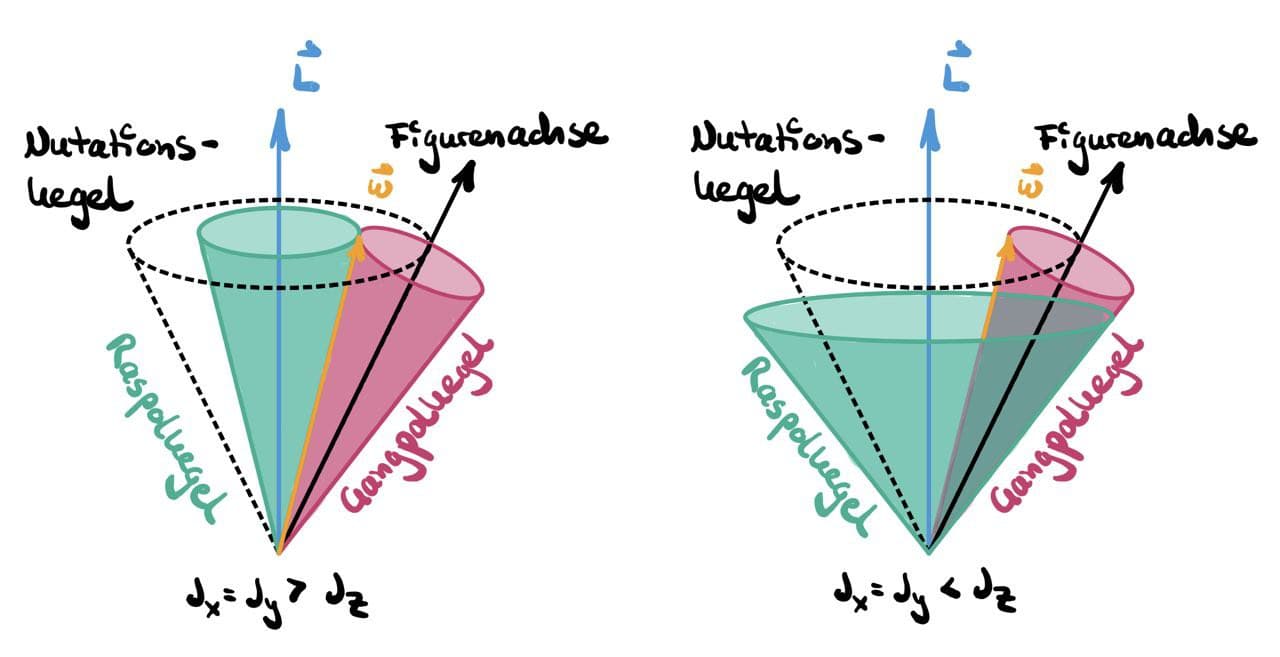 L⃗
Nutations-
kegel
Figurenachse
ω⃗
Raspolkegel
Gangpolkegel
Jx = Jy > Jz
L⃗
Nutations-
kegel
Figurenachse
ω⃗
Raspolkegel
Gangpolkegel
Jx = Jy < Jz